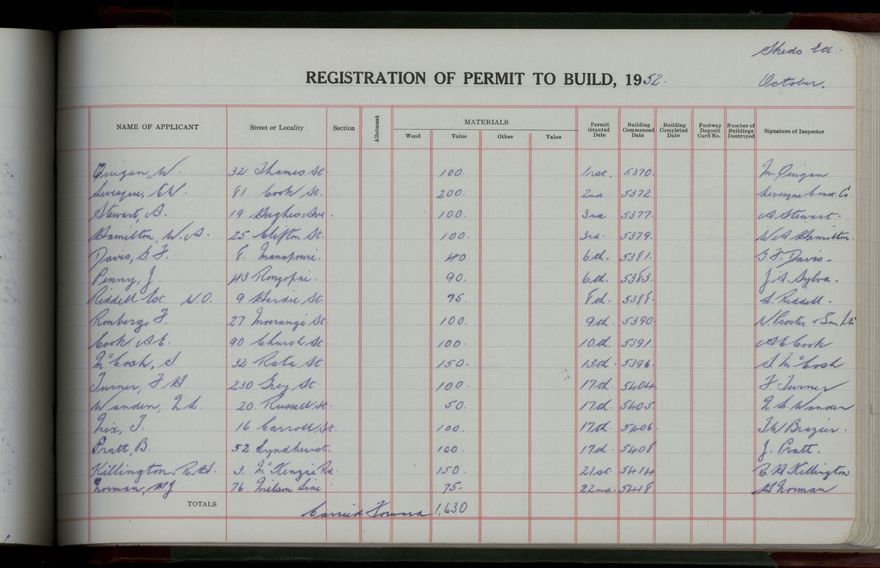 Sheds Etc.
REGISTRATION OF PERMIT TO BUILD, 1952.
October.
NAME OF APPLICANT Street or Locality Section Allotment MATERIALS Wood Value Other Value Permit Granted Date Building Commenced Date Building Completed Date Footway Deposit Card No. Number of Buildings Destroyed Signature of Inspector
Quigan W. 32 Thames St. 100. 1st. 5370. M. Quigan
Levesque, E.W. 81 Cook St. 200. 2nd 5372. Levesque Const. Co
Stewart, A. 19 Hughes Ave. 100. 3rd 5377. A. Stewart.
Hamilton, W.A. 25 Clifton St. 100. 3rd. 5379. W A Hamilton.
Davis, G F. 8. Manapouri. 40 6th. 5381. G F. Davis.
Penny, J. 43 Rongopai. 90. 6th. 5383. J. A. Sylva.
Riddell Est. W.O. 9 Hardie St. 75. 8th. 5388. S. Riddell.
Romberg, F. 27 Moerangi St. 100. 9th. 5390. W Procter & Son Ltd
Cook A E. 90 Church St. 100. 10th. 5391. A E Cook
McCosh, S. 32 Rata St 150. 13th. 5396. S McCosh
Turner, F H. 230 Grey St 100. 17th. 5404. F Turner
Wanden, 20. Russell St. 50. 17th. 5405. Wanden
Nix, T. 16 Carroll St. 100. 17th. 5406. Brazier.
Pratt, B. 52 Lyndhurst. 100. 17th. 5408 J. Pratt.
Killington, R.H. 3. McKenzie Rd. 150. 21st 5414 R H Killington
Norman, 76 Milson Line 75- 22nd. 5418. Norman
TOTALS
Carried Forward 1,630